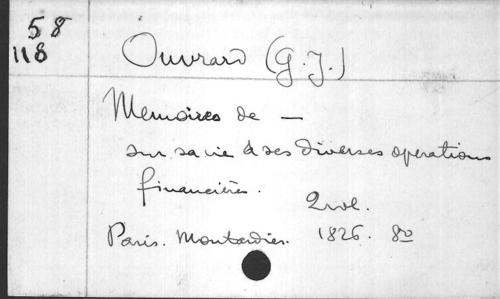 58
118
Ouvrard (G.J.)
Memoires de —
sur sa vie & ses diverses operations
financières.
2 vol.
Paris. Moutardier. 1826. 8o